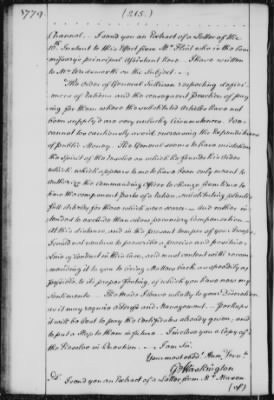 1779 (215.)
Channel. I send you an Extract of a Letter of the
10th Instant to this Effect from Mr. Flint who is the Com-
missary's principal Assistant here. I have written
to Mr. Wadsworth on the Subject.
The Order of General Sullivan respecting deficiencies
of Rations and the consequent Practice of pay-
ing for them where the substituted Articles have not
been supply'd are very unlucky Circumstances. You
cannot too cautiously avoid increasing the Expenditures
of public Money. The General seems to have mistaken
the Spirit of the Resolve on which he founds his Order
which appears to me to have been only meant to
authorize the commanding Officer to change from time to
time the component Parts of the Ration, substituting
for where and neither in-
tended to preclude than allow pecuniary Compensation.
At this distance, and in the present temper of your Troops
I would not venture to prescribe a precise and positive
Line of Conduct in this case, and must content with recom-
mending it to you to bring Matters back as speedily as
possible, to its proper footing, of which you have now my
Sentiments. The Mode I leave wholly to your Discretion
as it may require Address and Management. Perhaps
it will be best to pay the Certificates already given, and
to put a Stop to them in future. I inclose you a Copy of
the Resolve in Question. I am Sir.
Your most obedt. Hum. Servt.
Go. Washington
I send you an Extract of a Letter from Mr.
(of)